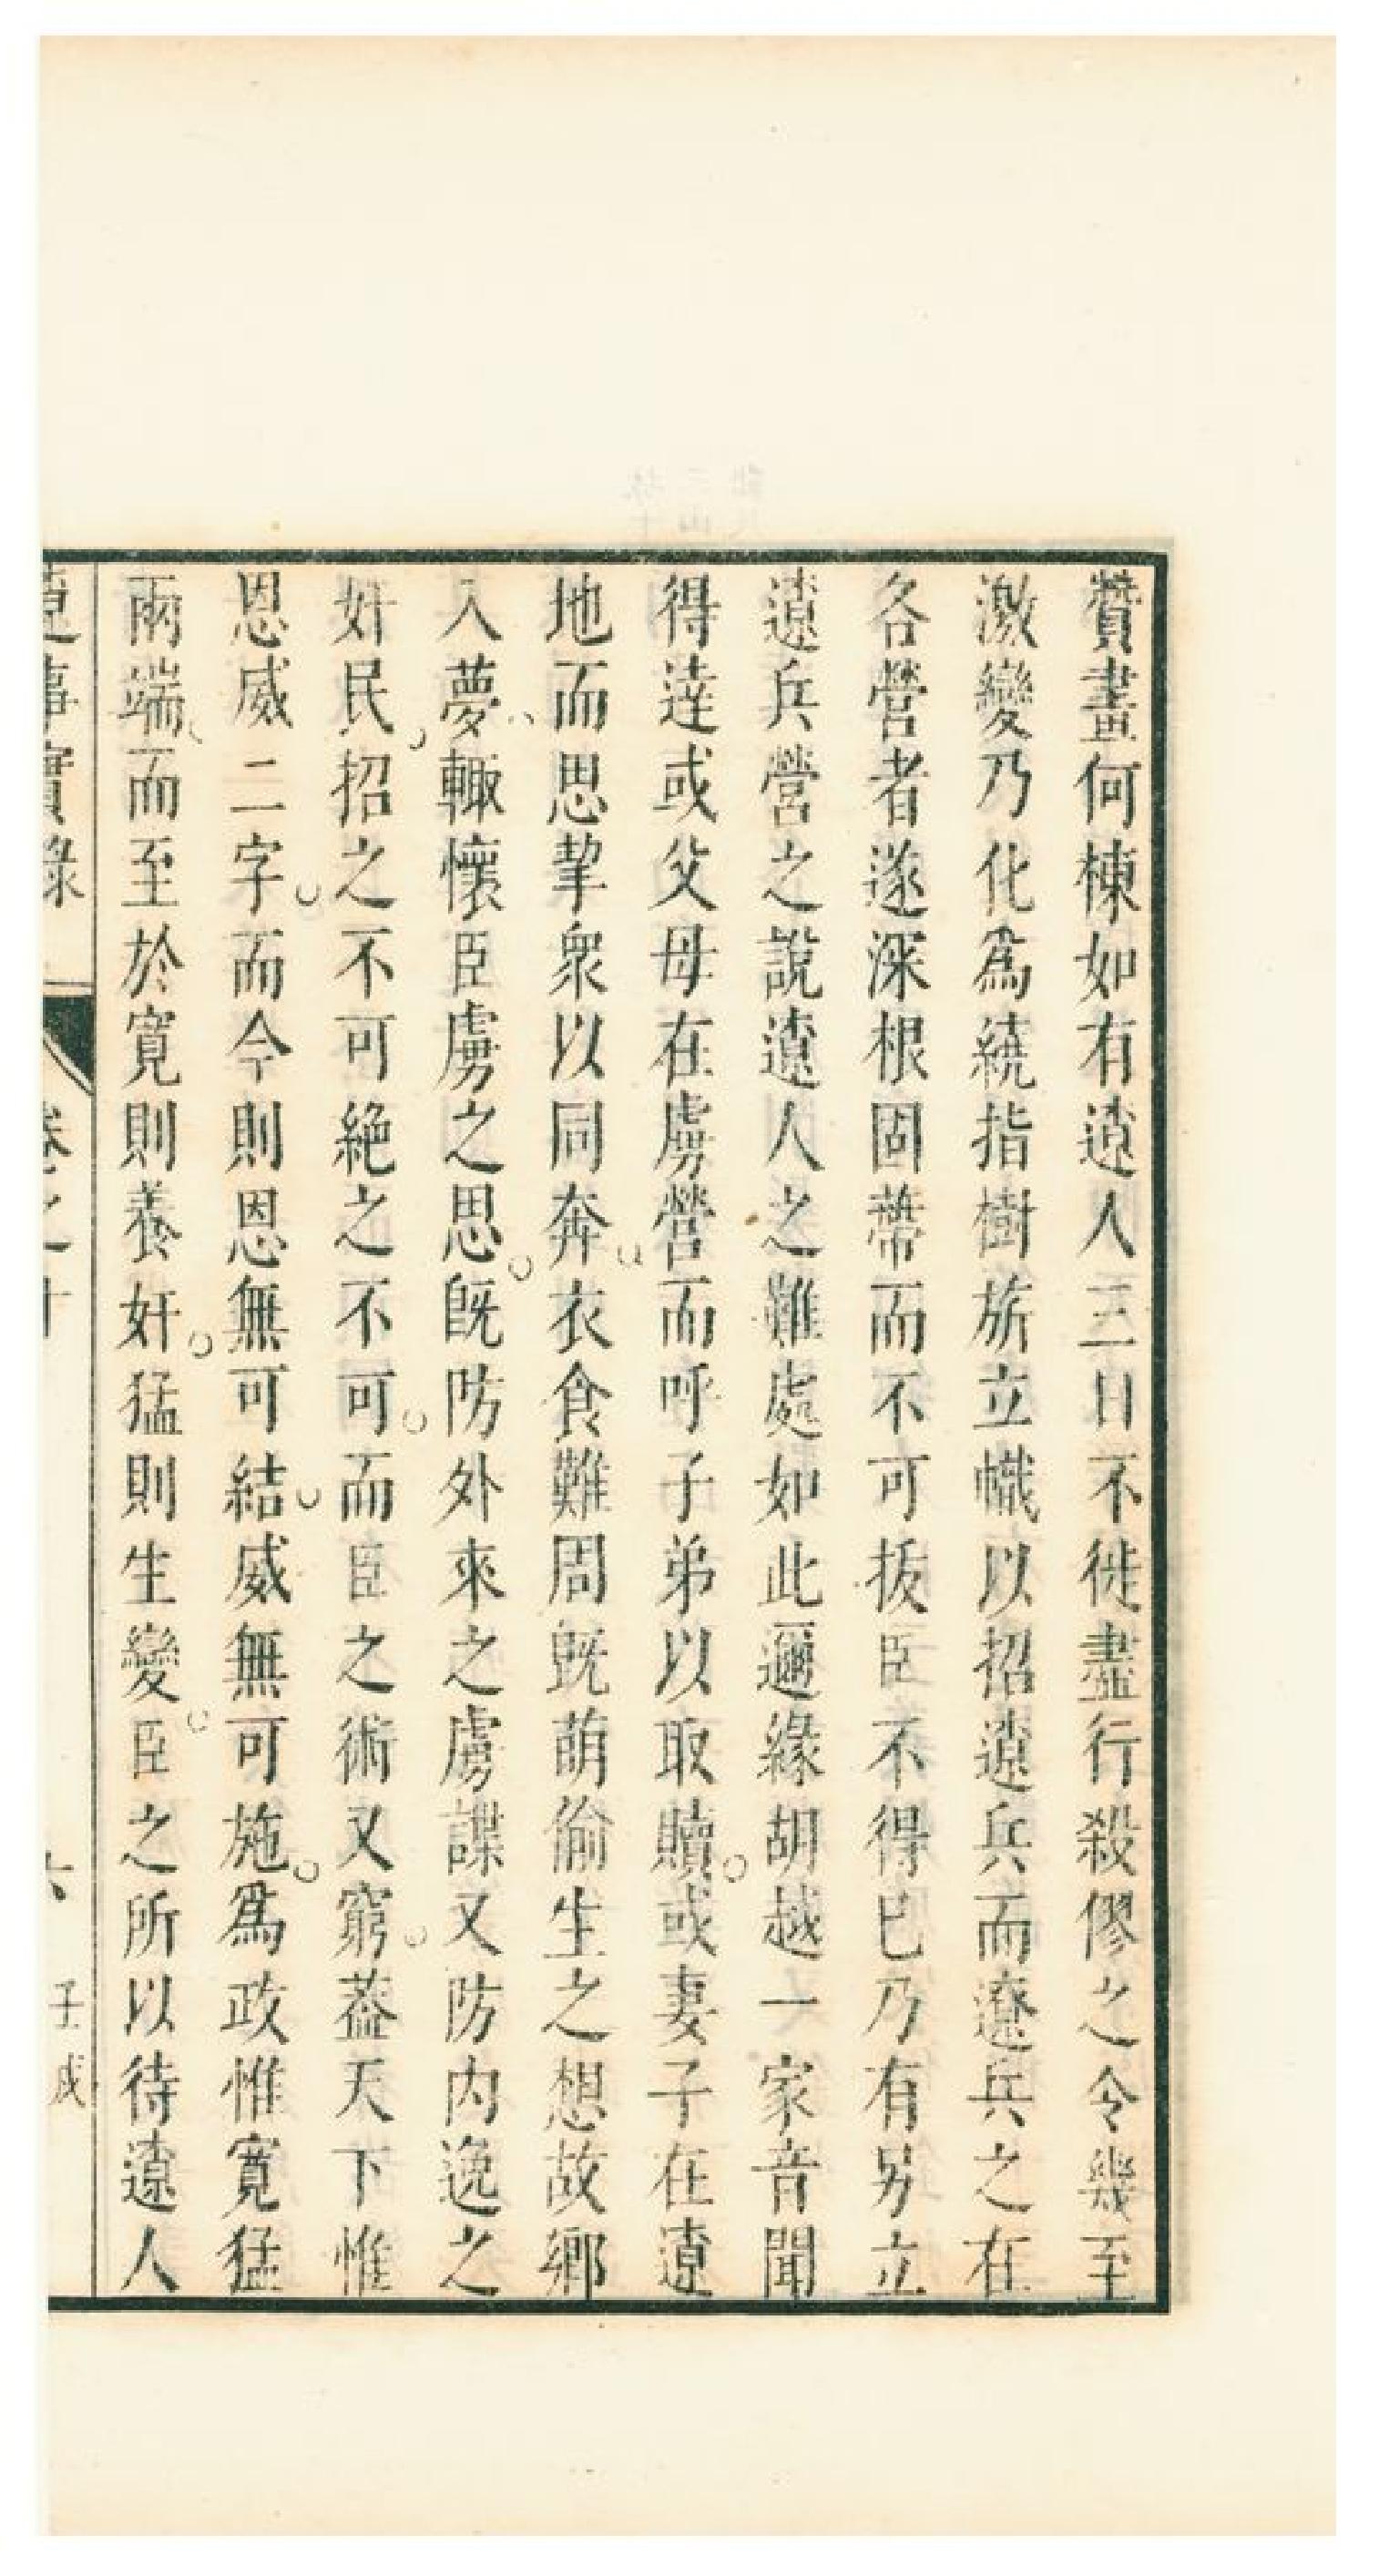 贊畫何棟如有遼人三日不徙盡行殺僇之令幾至
激變乃化爲繞指樹旂立幟以招遼兵而遼兵之在
各營者遂深根固蔕而不可拔臣不得已乃有另立
遼兵營之說遼人之難處如此邇緣胡越一家音聞
得達或父母在虜營而呼子弟以取贖或妻子在遼
地而思挈衆以同奔衣食難周旣萌偷生之想故鄉
入夢輙懷臣虜之思旣防外來之虜諜又防內逸之
奸民招之不可絶之不可而臣之術又窮葢天下惟
恩威二字而今則恩無可結威無可施爲政惟寛猛
兩端而至於寛則養奸猛則生變臣之所以待遼人
事實錄 卷之十 六 壬戌